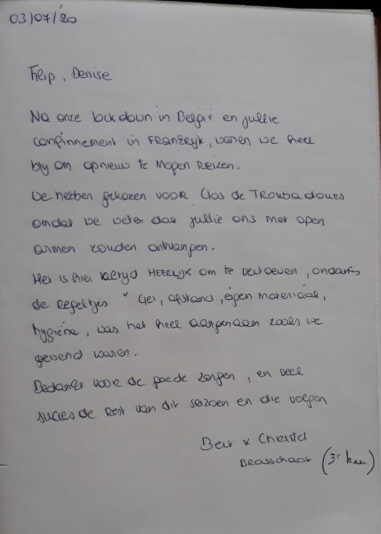 03/07/'20
Filip, Denise
Na onze lockdown in België en jullie
confinnement in Frankrijk, waren we heel
blij om opnieuw te mogen reizen.
We hebben gekozen voor Clos de Troubadours
omdat we weten dat jullie ons met open
armen zouden ontvangen.
Het is hier altijd HEERLIJK om te vertoeven, ondanks
de regeltjes " Gel, afstand, eigen materiaal,
hygiëne, was het heel aangenaam zoals we
gewend waren.
Bedankt voor de goede zorgen, en veel
succes de rest van dit seizoen en die volgen
& Christel
Brasschaat (3e keer)